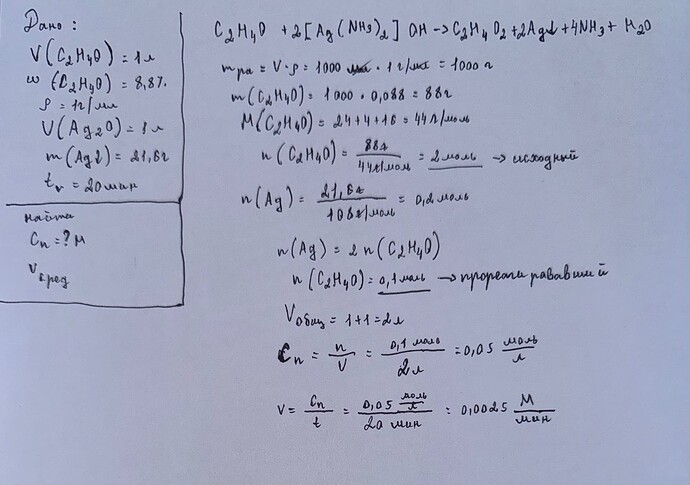 Дано:
V(C₂H₄O) = 1 л
ω(C₂H₄O) = 8,8%
ρ = 1г/мл
V(Ag₂O) = 1 л
m(Ag↓) = 21,6г
tᵥ = 20 мин
найти
Cₙ = ? М
Vсред
C₂H₄O + 2[Ag(NH₃)₂]OH → C₂H₄O₂ + 2Ag↓ + 4NH₃ + H₂O
mра = V · ρ = 1000 · 1 г/мл = 1000 г
m(C₂H₄O) = 1000 · 0,088 = 88г
M(C₂H₄O) = 24+4+16 = 44г/моль
n(C₂H₄O) = 88г / 44г/моль = 2 моль → исходный
n(Ag) = 21,6г / 108г/моль = 0,2 моль
n(Ag) = 2n(C₂H₄O)
n(C₂H₄O) = 0,1 моль → прореагировавший
Vобщ = 1+1 = 2 л
Cₙ = n / V = 0,1 моль / 2л = 0,05 моль/л
V = Cₙ / t = 0,05 моль/л / 20 мин = 0,0025 М/мин